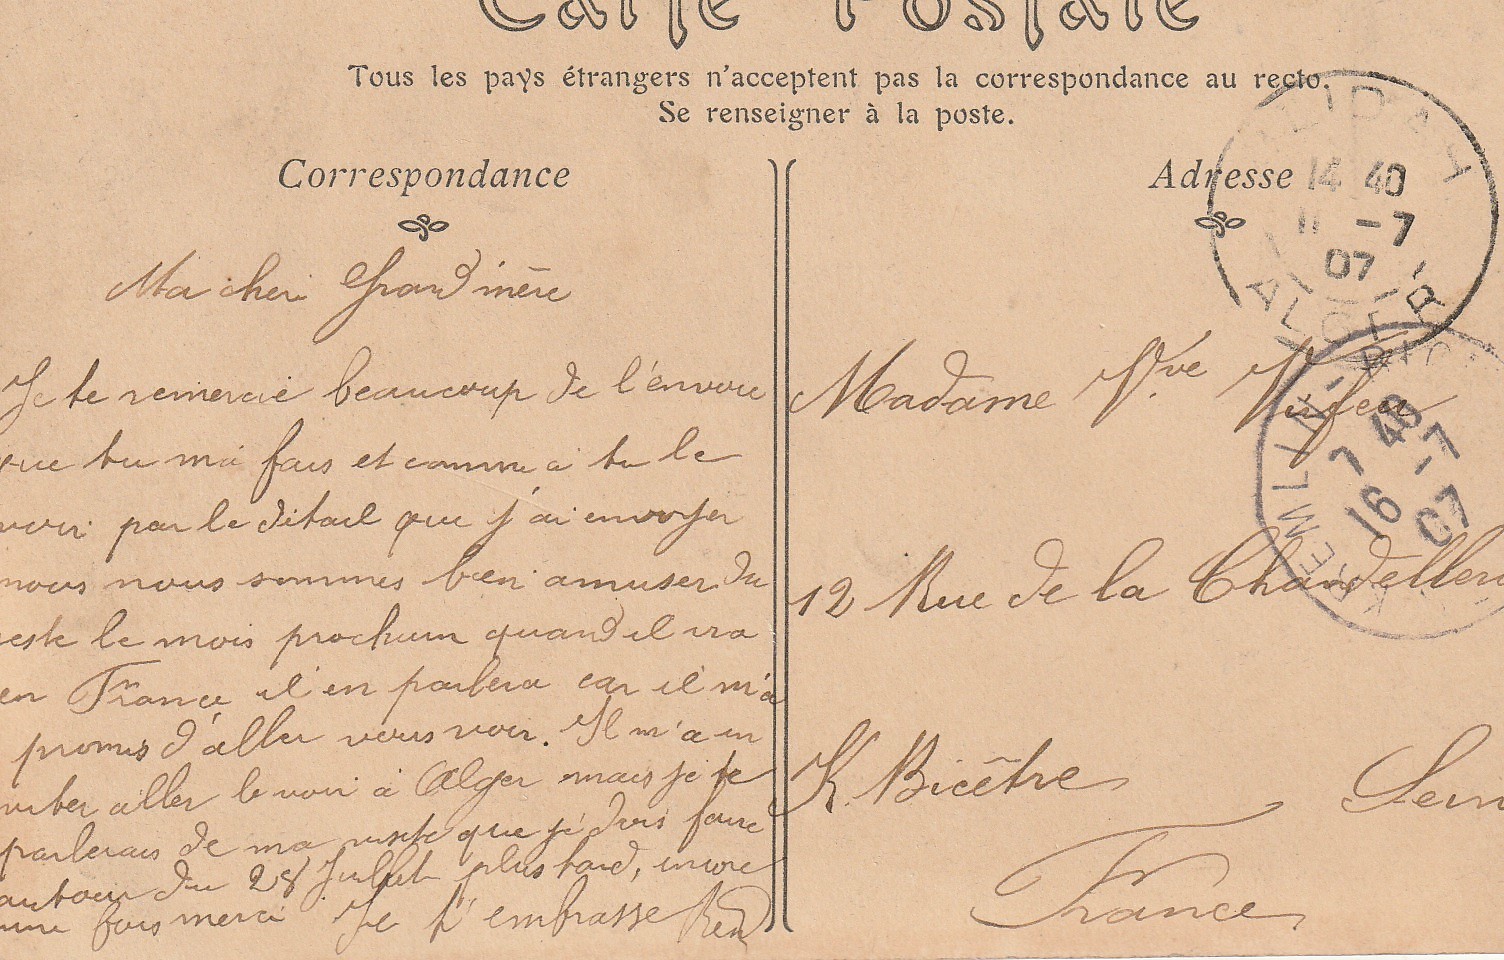 Carte Postale
Tous les pays étrangers n'acceptent pas la correspondance au recto.
Se renseigner à la poste.
Correspondance
Ma cheri Grand'mère
Je te remercie beaucoup de l'envoie
que tu m'a fais et comme a tu le
voir par le détail que j'ai envoyer
nous nous sommes bien amuser du
reste le mois prochain quand il ira
en France il en parlera car il m'a
promis d'aller vous voir. Il m'a in
viter aller le voir à Alger mais je te
parlerais de ma visite que je dois faire
autour du 28 Juillet plus tard, encore
une fois merci Je t'embrasse René
Adresse
Madame Vve
12 Rue de la Chandelleri
K. Bicêtre Sein
France
BLIDAH
14 40
11 -7
07
ALGER
KREMLIN-BICÊ
7 40
16 -7
07